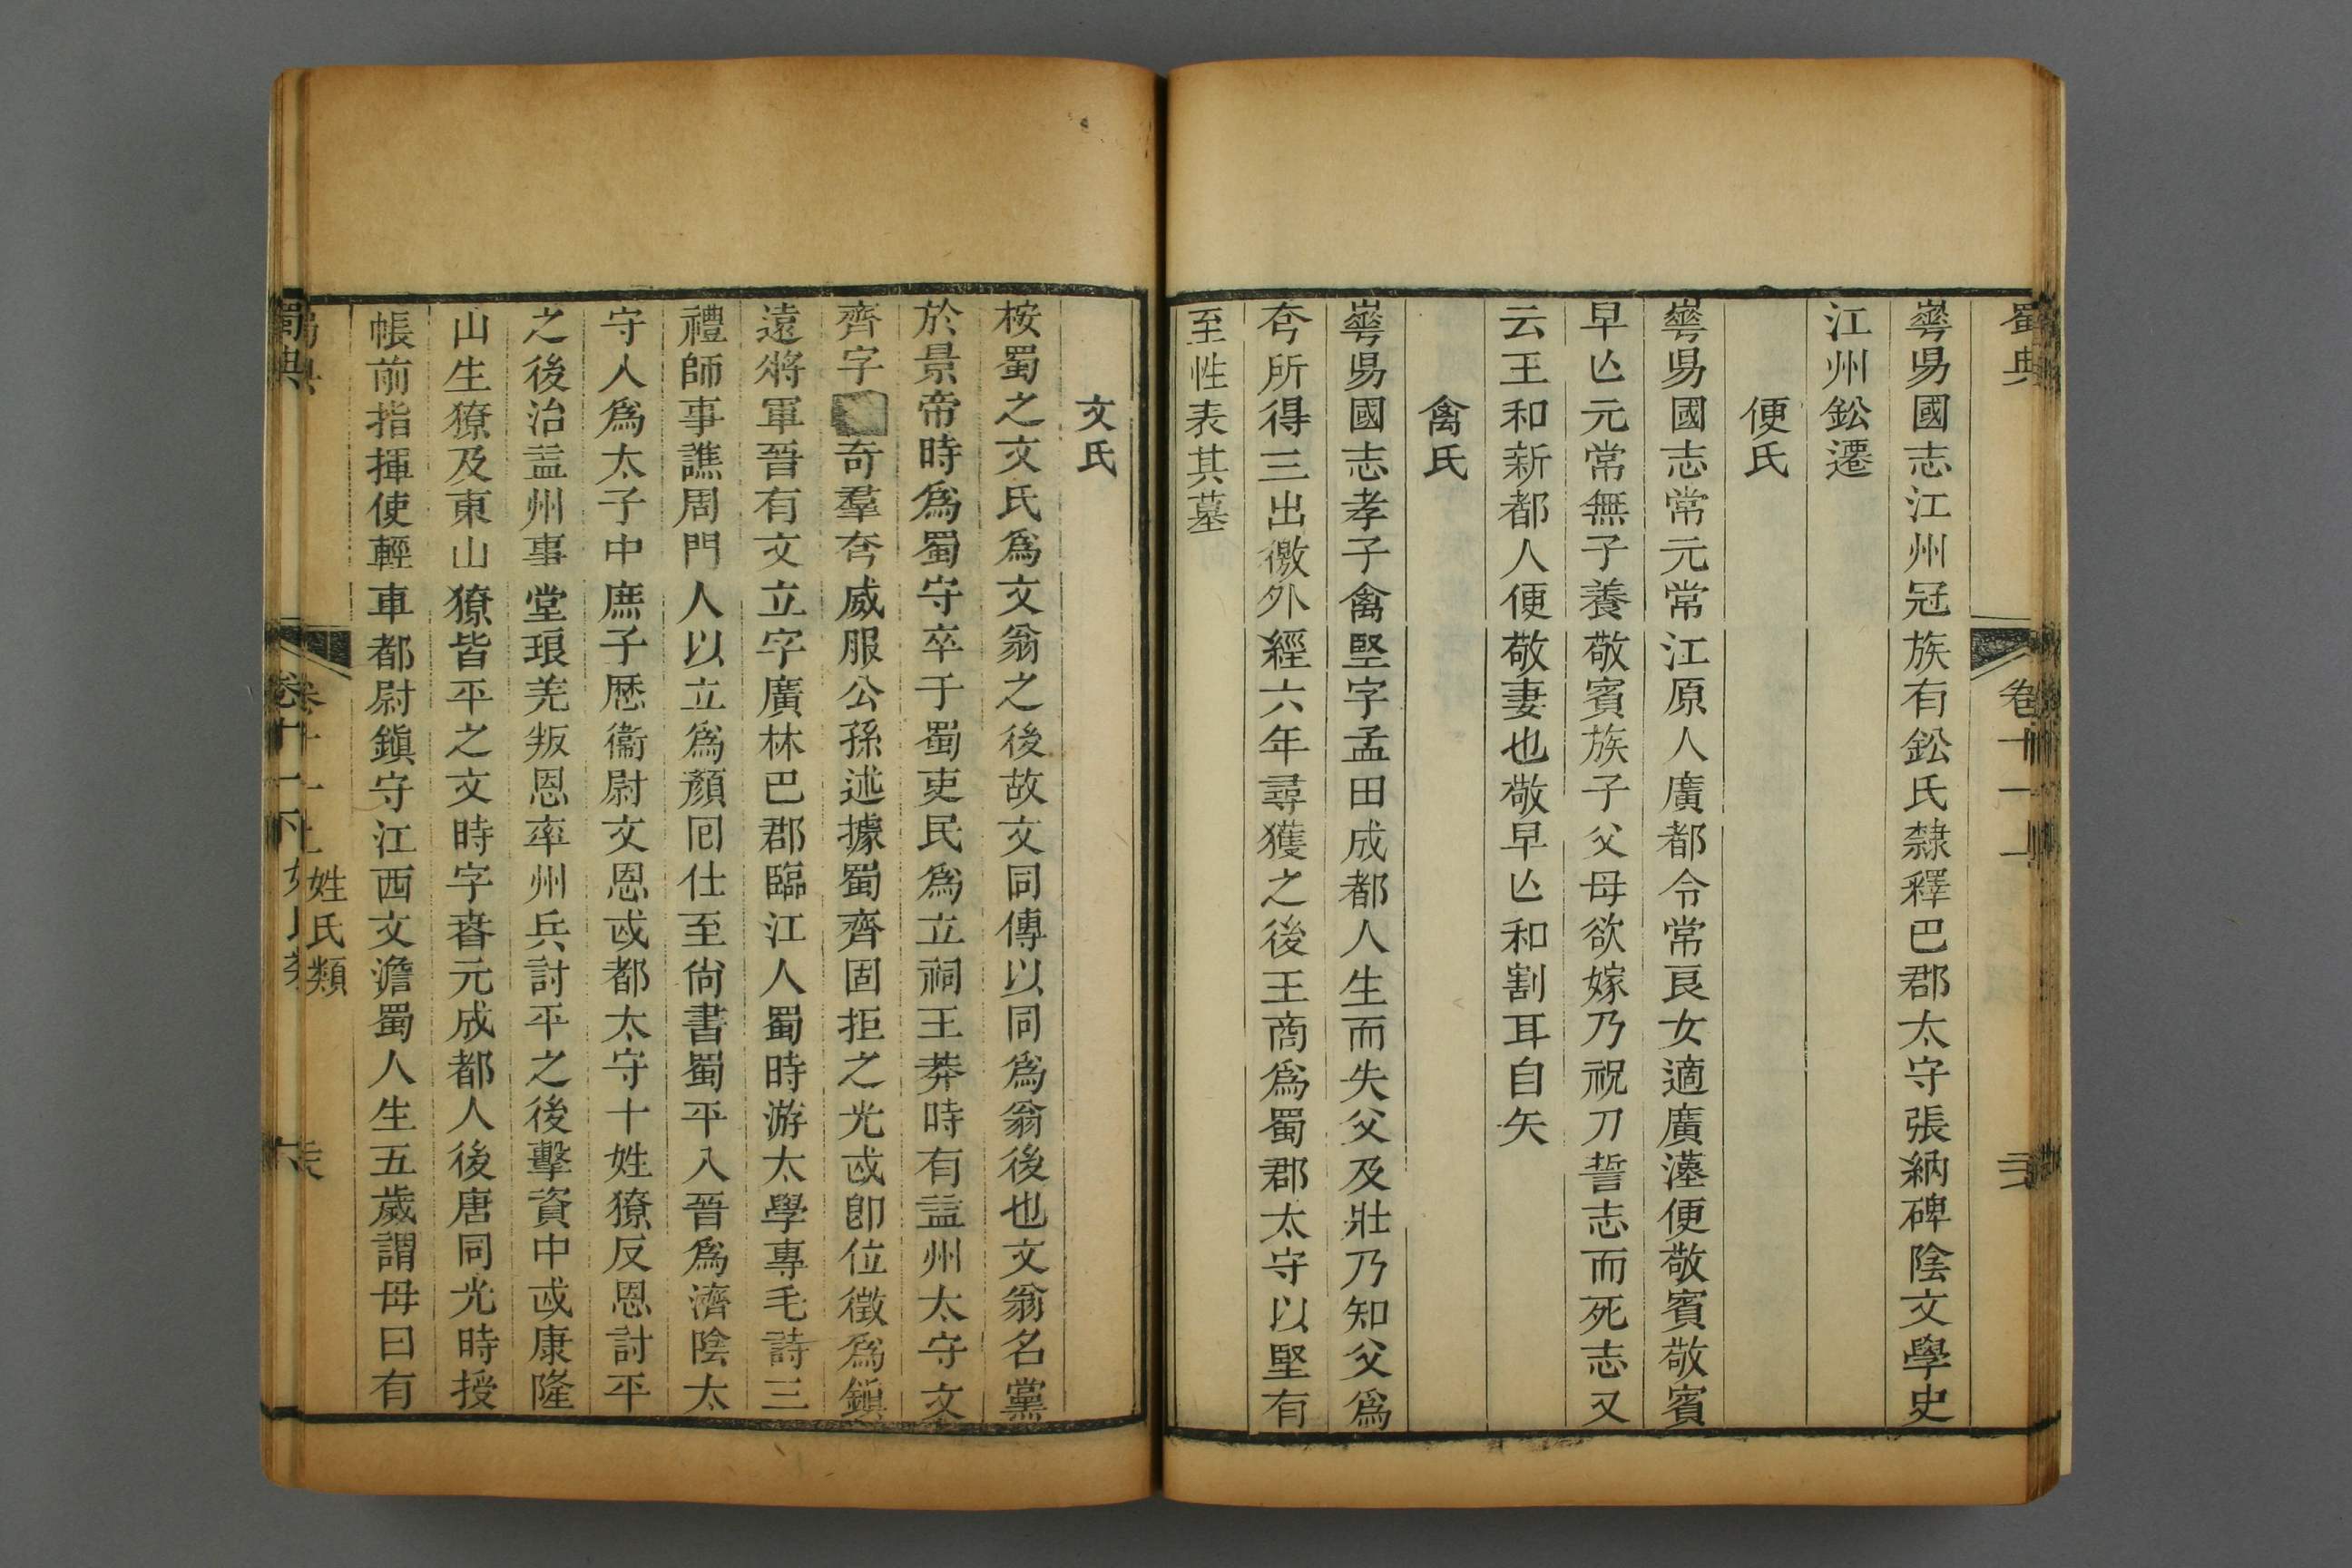 蜀典
卷十一
崋昜國志江州冠族有鈆氏隸釋巴郡太守張納碑陰文學史
江州鈆遷
便氏
崋昜國志常元常江原人廣都令常良女適廣漢便敬賓敬賓
早亾元常無子養敬賓族子父母欲嫁乃祝刀誓志而死志又
云王和新都人便敬妻也敬早亾和割耳自矢
禽氏
崋昜國志孝子禽堅字孟田成都人生而失父及壯乃知父爲
夸所得三出徼外經六年尋獲之後王商爲蜀郡太守以堅有
至性表其墓
文氏
桉蜀之文氏爲文翁之後故文同傳以同爲翁後也文翁名黨
於景帝時爲蜀守卒于蜀吏民爲立祠王莽時有益州太守文
齊字奇羣夸威服公孫述據蜀齊固拒之光武卽位徵爲鎭
遠將軍晉有文立字廣林巴郡臨江人蜀時游太學專毛詩三
禮師事譙周門人以立爲顏回仕至尙書蜀平入晉爲濟陰太
守人爲太子中庶子歷衞尉文恩武都太守十姓獠反恩討平
之後治益州事堂琅羌叛恩率州兵討平之後擊資中武康隆
山生獠及東山獠皆平之文時字春元成都人後唐同光時授
帳前指揮使輕車都尉鎭守江西文澹蜀人生五歲謂母曰有
姓氏類
蜀典